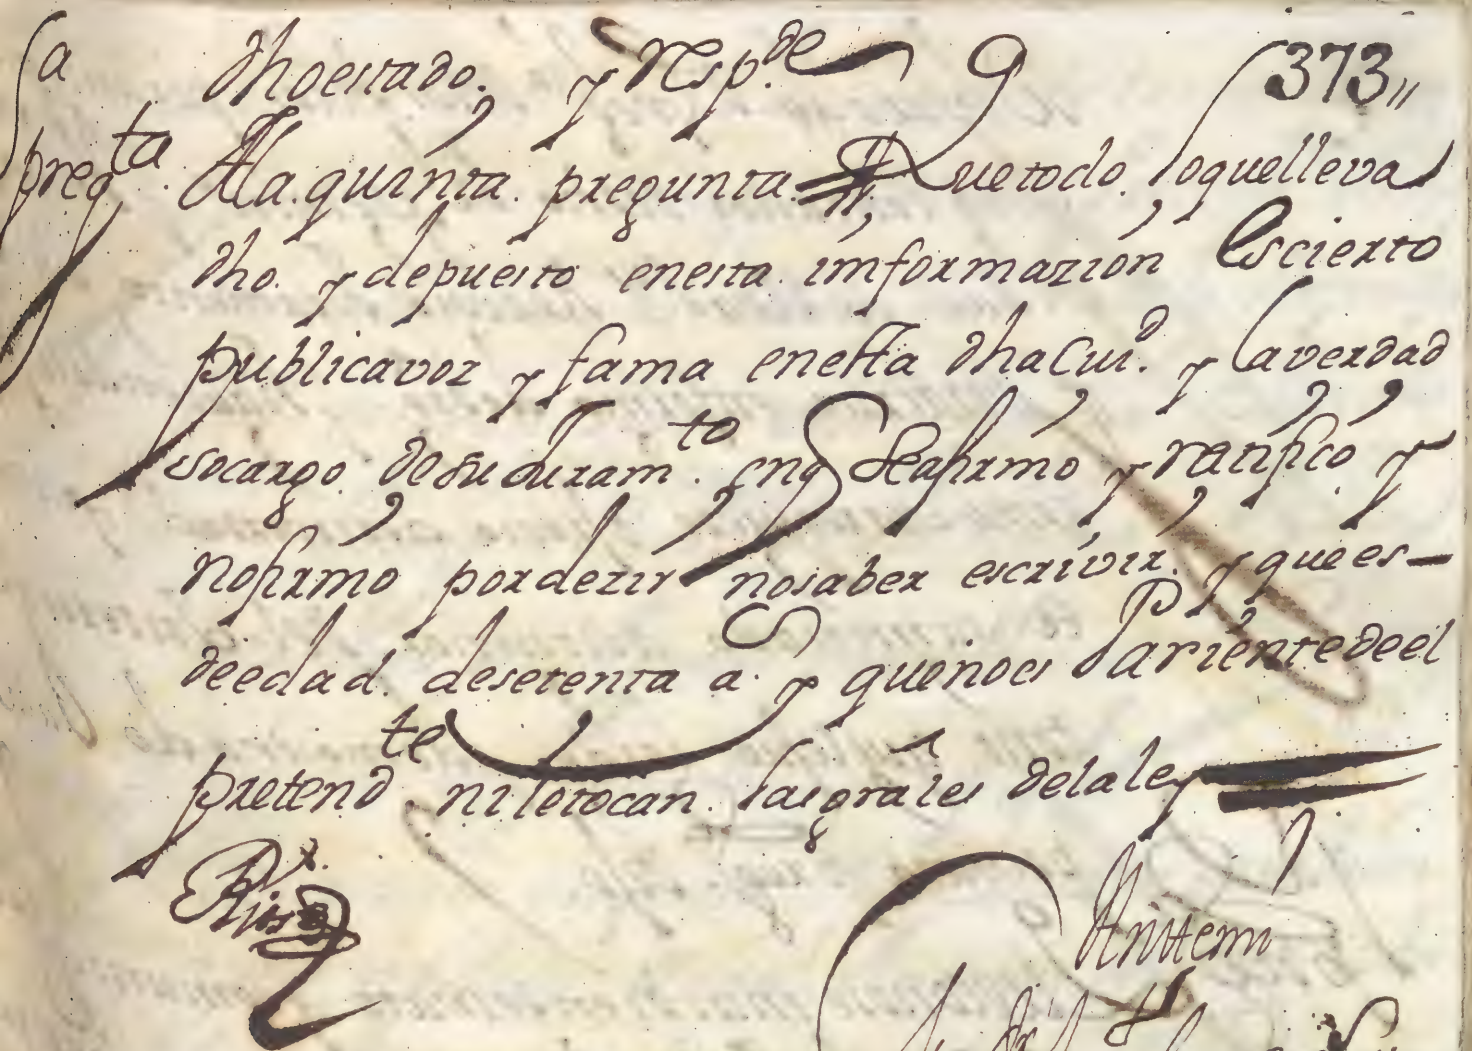 dho estado. y resp.de 373
5a preg.ta A la quinta pregunta Que todo lo que lleva
dho. y depuesto en esta imformazion Es cierto
publica voz y fama en esta dha Ciu.d y la verdad
so cargo de su Juram.to en q Se afirmo y ratifico y
no firmo por dezir no saber escrivir. y que es
de edad. de setenta a.s y que no es Pariente de el
pretend.te ni le tocan las grâles de la ley
Ante mi